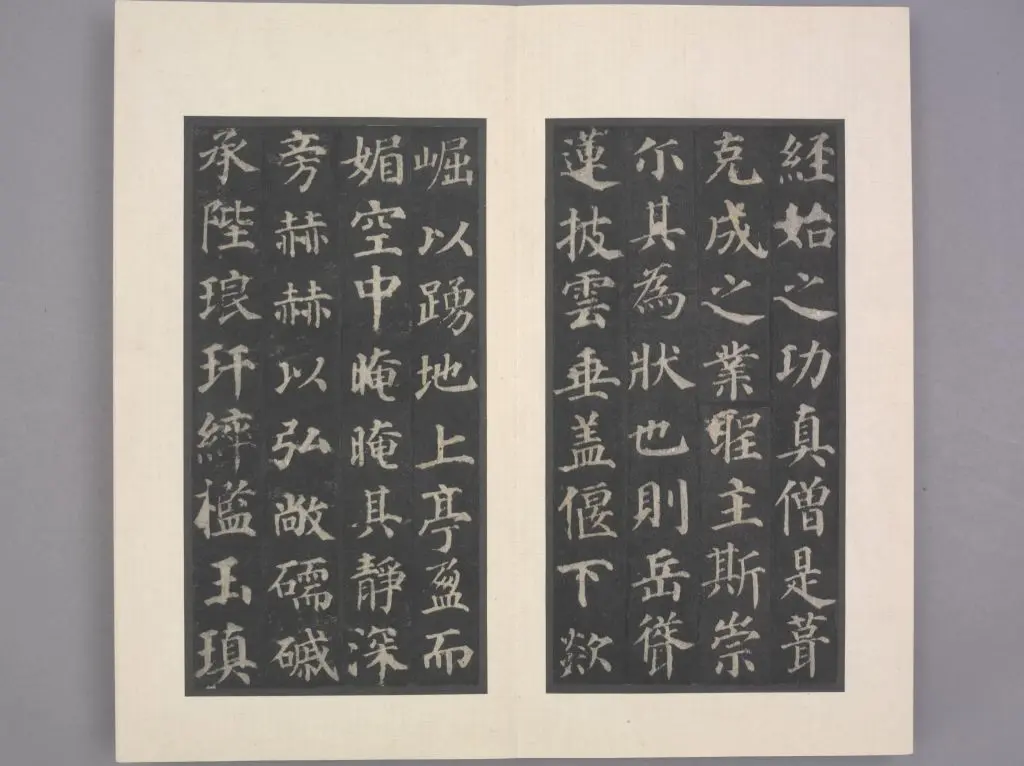 経始之功真僧是葺
克成之業聖主斯崇
尒其為狀也則岳聳
蓮披雲垂盖偃下欻
崛以踴地上亭盈而
媚空中晻晻其靜深
旁赫赫以弘敞礝磩
承陛琅玕綷檻玉瑱